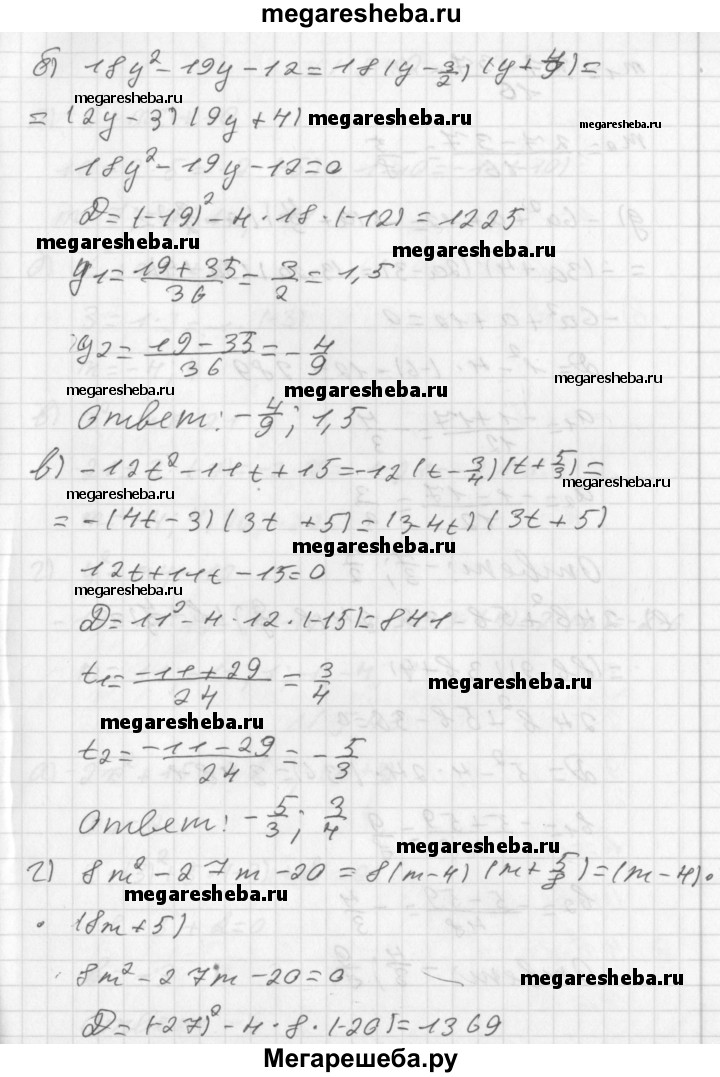 megaresheba.ru
б) 18y² - 19y - 12 = 18(y - 3/2)(y + 4/9) =
megaresheba.ru
= (2y - 3)(9y + 4) megaresheba.ru
megaresheba.ru
18y² - 19y - 12 = 0
D = (-19)² - 4 · 18 · (-12) = 1225
megaresheba.ru
megaresheba.ru
y1 = (19 + 35)/36 = 3/2 = 1,5
y2 = (19 - 35)/36 = - 4/9
megaresheba.ru
megaresheba.ru
Ответ: - 4/9; 1,5
в) -12t² - 11t + 15 = -12(t - 3/4)(t + 5/3) =
megaresheba.ru
megaresheba.ru
= -(4t - 3)(3t + 5) = (3 - 4t)(3t + 5)
megaresheba.ru
12t + 11t - 15 = 0
megaresheba.ru
D = 11² - 4 · 12 · (-15) = 841
t1 = (-11 + 29)/24 = 3/4
megaresheba.ru
megaresheba.ru
t2 = (-11 - 29)/24 = - 5/3
Ответ: - 5/3; 3/4
megaresheba.ru
г) 8m² - 27m - 20 = 8(m - 4)(m + 5/8) = (m - 4) ·
megaresheba.ru
· (8m + 5)
8m² - 27m - 20 = 0
megaresheba.ru
D = (-27)² - 4 · 8 · (-20) = 1369
Мегарешеба.ру